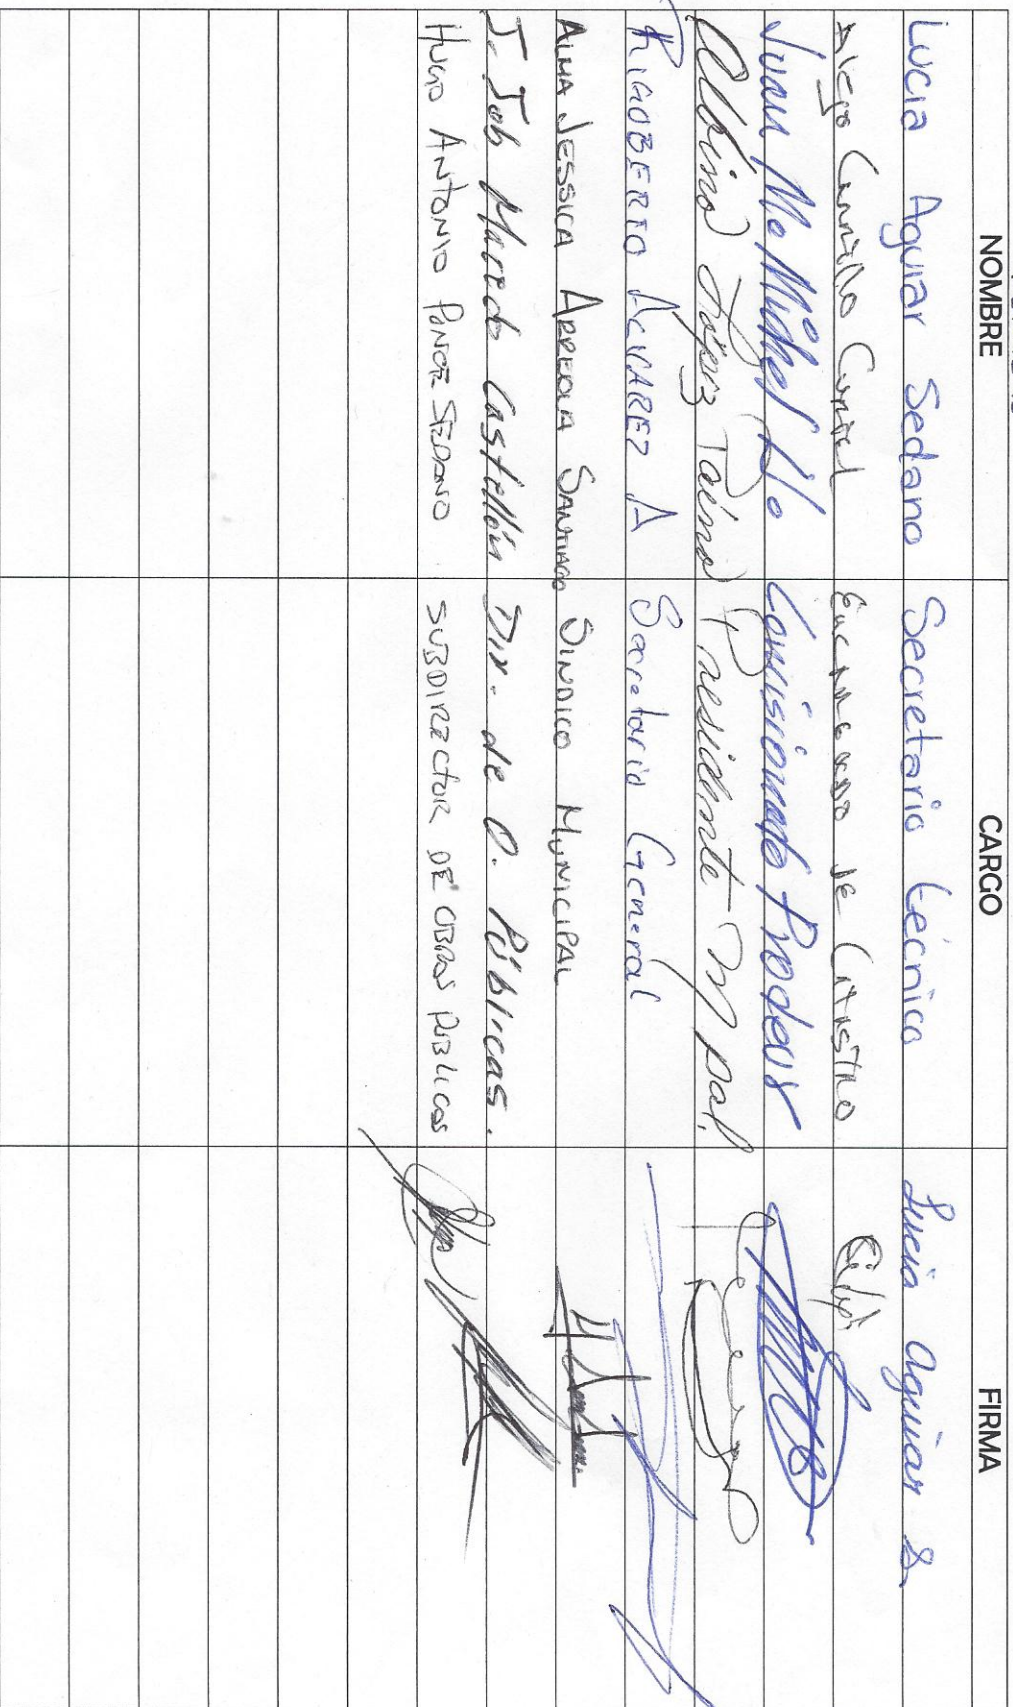 NOMBRE CARGO FIRMA
Lucia Aguiar Sedano Secretario técnico Lucia Aguiar S
Carrillo Curiel Encargado de Catastro
Juan Ma Michel Comisionado Prodeur
Albino López Presidente Mpal.
RIGOBERTO ALVAREZ A Secretario General
ALMA JESSICA ARREOLA SANTIAGO SINDICO MUNICIPAL
J. Job Macedo Castellón Dir. de O. Públicas.
HUGO ANTONIO SEDANO SUBDIRECTOR DE OBRAS PUBLICAS